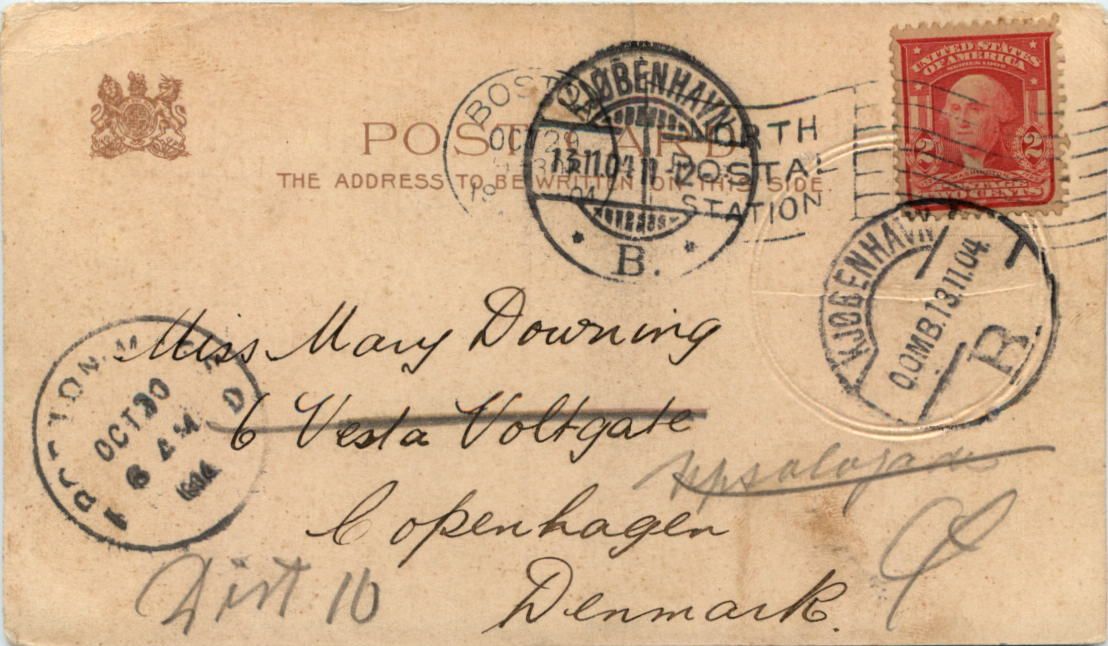 UNITED STATES
OF AMERICA
SERIES 1902
2 2
TWO CENTS
POST CARD
THE ADDRESS TO BE WRITTEN ON THIS SIDE.
BOSTON
OCT 29
NORTH
POSTAL
STATION
KJØBENHAVN
13.11.04 11-12
* B. *
KJØBENHAVN
O.OMB.13.11.04.
B.
OCT 30
6 AM
1904
Miss Mary Downing
6 Vesta Voltgate
Upsalagade
Copenhagen
Denmark.
Dist 10